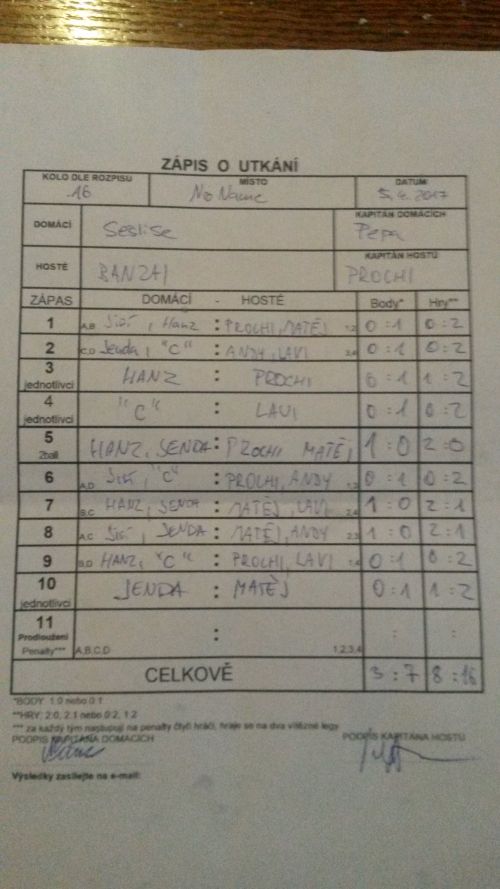 ZÁPIS O UTKÁNÍ
KOLO DLE ROZPISU MÍSTO DATUM
16 No Name 5.4.2017
DOMÁCÍ Seslise KAPITÁN DOMÁCÍCH Pepa
HOSTÉ BANZAI KAPITÁN HOSTŮ PROCHI
ZÁPAS DOMÁCÍ - HOSTÉ Body* Hry**
1 A,B Jiří, Hanz : PROCHI, MATĚJ 1,2 0:1 0:2
2 C,D Jenda, "C" : ANDY, LAVI 3,4 0:1 0:2
3 jednotlivci HANZ : PROCHI 0:1 1:2
4 jednotlivci "C" : LAVI 0:1 0:2
5 2ball HANZ, JENDA : PROCHI MATĚJ 1:0 2:0
6 A,D Jiří, "C" : PROCHI, ANDY 1,3 0:1 0:2
7 B,C HANZ, JENDA : MATĚJ, LAVI 2,4 1:0 2:1
8 A,C Jiří, JENDA : MATĚJ, ANDY 2,3 1:0 2:1
9 B,D HANZ, "C" : PROCHI, LAVI 1,4 0:1 0:2
10 jednotlivci JENDA : MATĚJ 0:1 1:2
11 Prodloužení Penalty*** A,B,C,D : 1,2,3,4 : :
CELKOVĚ 3:7 8:16
*BODY: 1:0 nebo 0:1
**HRY: 2:0, 2:1 nebo 0:2, 1:2
*** za každý tým nastupují na penalty čtyři hráči, hraje se na dva vítězné legy
PODPIS KAPITÁNA DOMÁCÍCH PODPIS KAPITÁNA HOSTŮ
Výsledky zasílejte na e-mail: